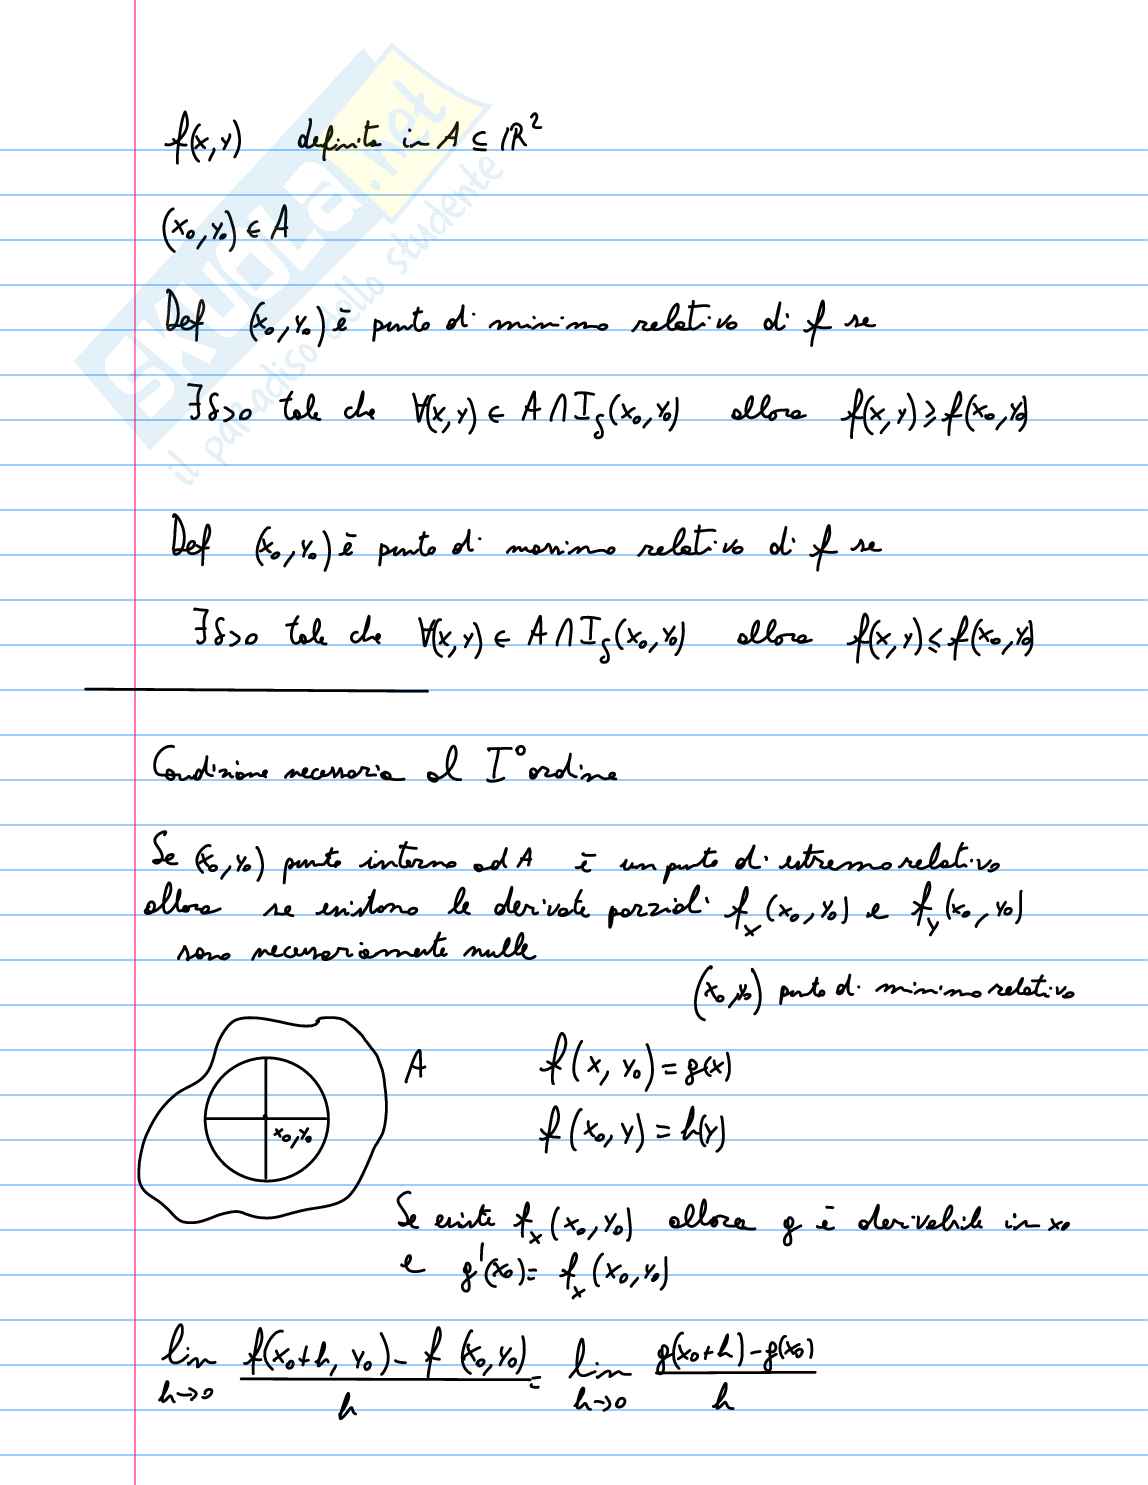 f(x,y) definita in A ⊆ ℝ²
(x₀,y₀) ∈ A
Def (x₀,y₀) è punto di minimo relativo di f se
∃δ>0 tale che ∀(x,y) ∈ A ∩ I_δ(x₀,y₀) allora f(x,y) ≥ f(x₀,y₀)
Def (x₀,y₀) è punto di massimo relativo di f se
∃δ>0 tale che ∀(x,y) ∈ A ∩ I_δ(x₀,y₀) allora f(x,y) ≤ f(x₀,y₀)
Condizione necessaria al I° ordine
Se (x₀,y₀) punto interno ad A è un punto di estremo relativo
allora se esistono le derivate parziali f_x(x₀,y₀) e f_y(x₀,y₀)
sono necessariamente nulle
(x₀,y₀) punto di minimo relativo
A f(x,y₀) = g(x)
f(x₀,y) = h(y)
x₀,y₀
Se esiste f_x(x₀,y₀) allora g è derivabile in x₀
e g'(x₀) = f_x(x₀,y₀)
lim_{h→0} (f(x₀+h, y₀) - f(x₀,y₀))/h = lim_{h→0} (g(x₀+h) - g(x₀))/h
SKUOLA.net
il paradiso dello studente